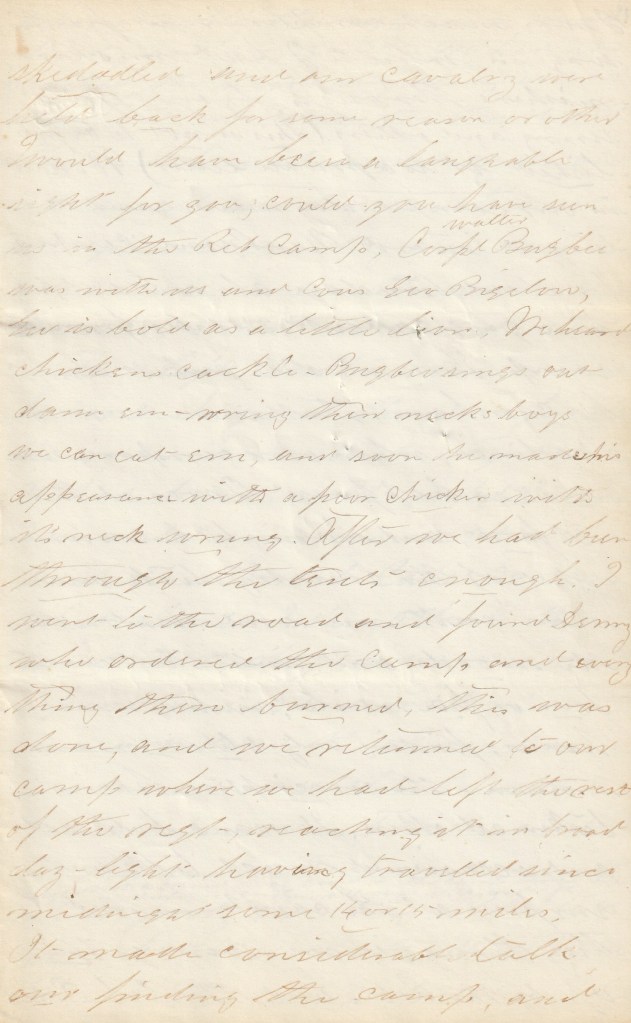 skedadled and our cavalry were
held back for some reason or other
would have been a laughable
sight for you, could you have seen
us in the Reb Camp, Corpl Walter Bugbee
was with us and Cous Geo Bigelow,
he is bold as a little lion, We heard
chickens cackle - Bugbee sings out
damn em - wring their necks boys
we can eat em, and soon he made his
appearance with a poor chicken with
its neck wrung. After we had been
through the tents enough. I
went to the road and found
who ordered the camp and every
thing there burned, this was
done, and we returned to our
camp where we had left the rest
of the regt, reaching it in broad
day-light having travelled since
midnight some 14 or 15 miles.
It made considerable talk
our finding the camp, and